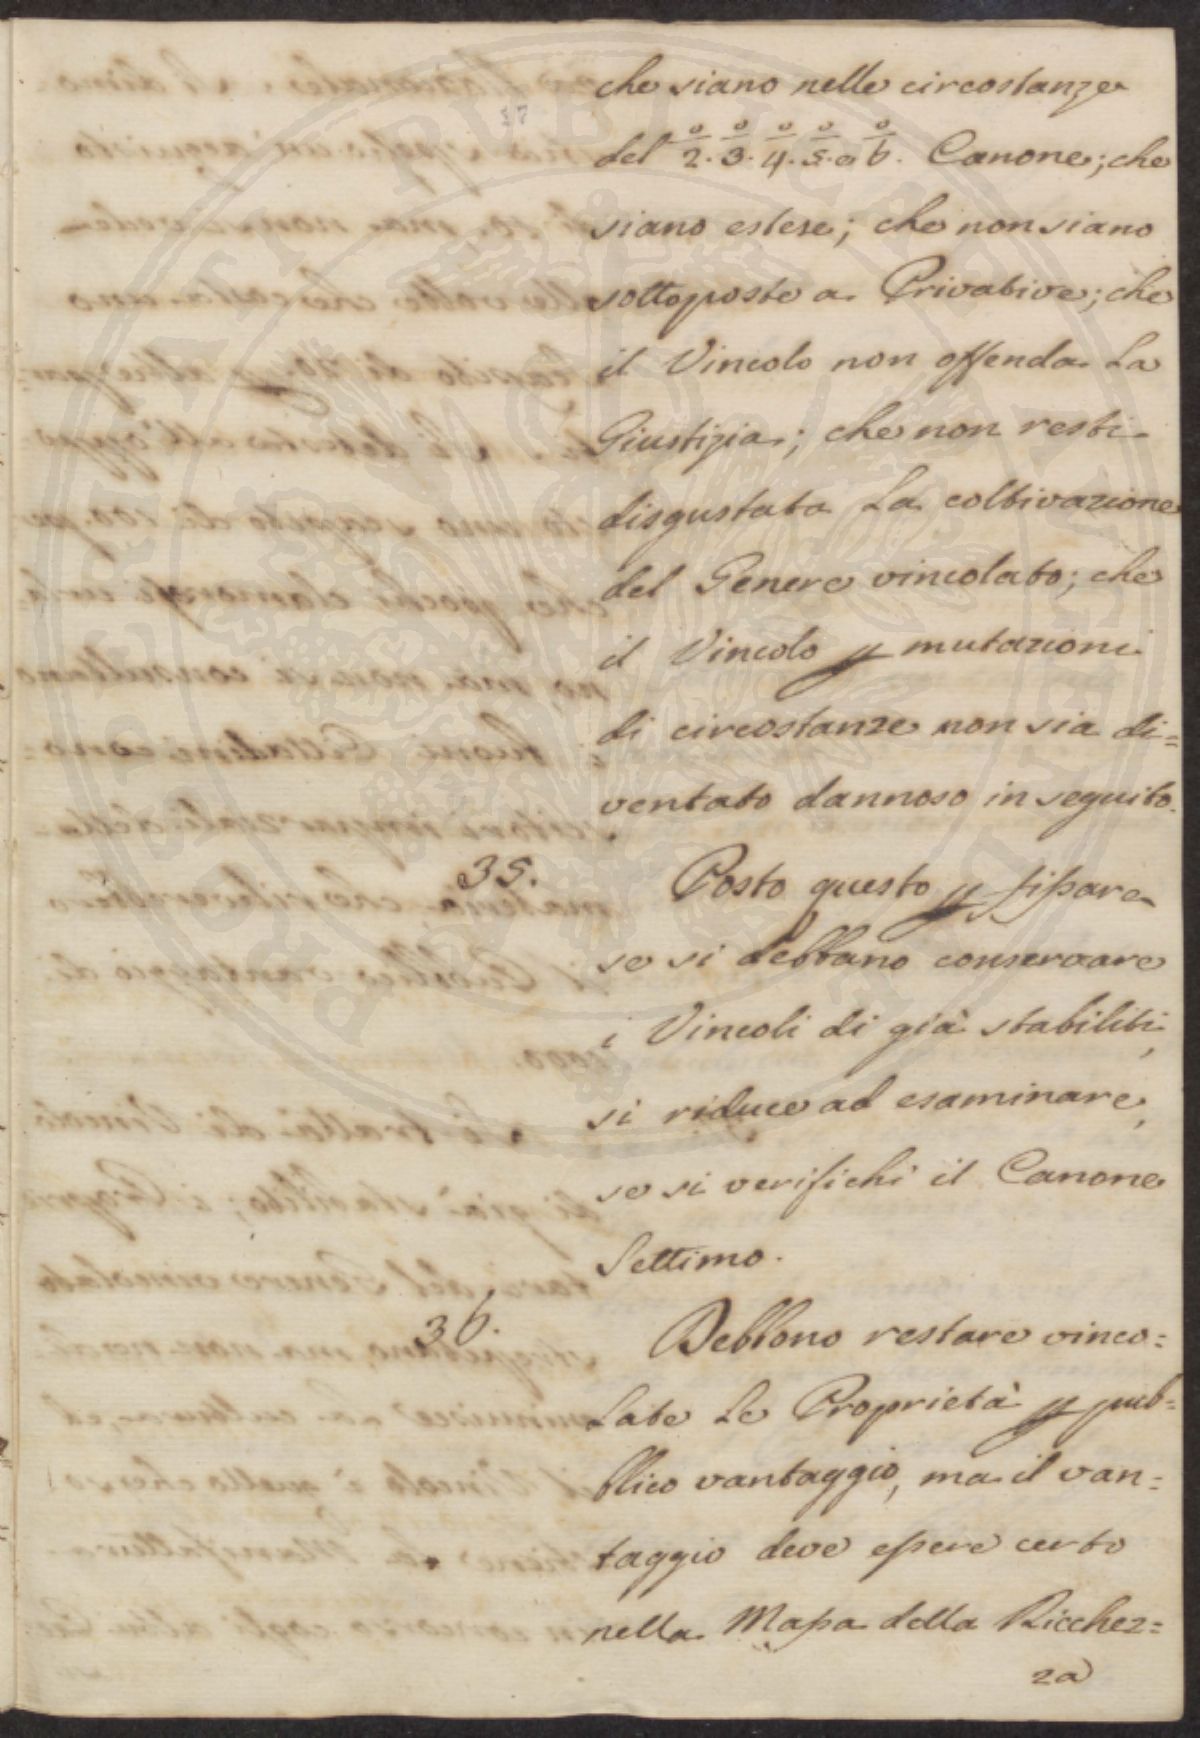 che siano nelle circostanze
del 2.º 3.º 4.º 5.º e 6.º Canone; che
siano estese; che non siano
sottoposte a Privative; che
il Vincolo non offenda La
Giustizia; che non resti
disgustata La coltivazione
del Genere vincolato; che
il Vincolo p mutazioni
di circostanze non sia di=
ventato dannoso in seguito.
35. Posto questo p fissare
se si debbano conservare
i Vincoli di già stabiliti,
si riduce ad esaminare,
se si verifichi il Canone
Settimo.
36. Debbono restare vinco=
Late Le Proprietà p pub=
blico vantaggio, ma il van=
taggio deve essere certo
nella Massa della Ricchez=
za